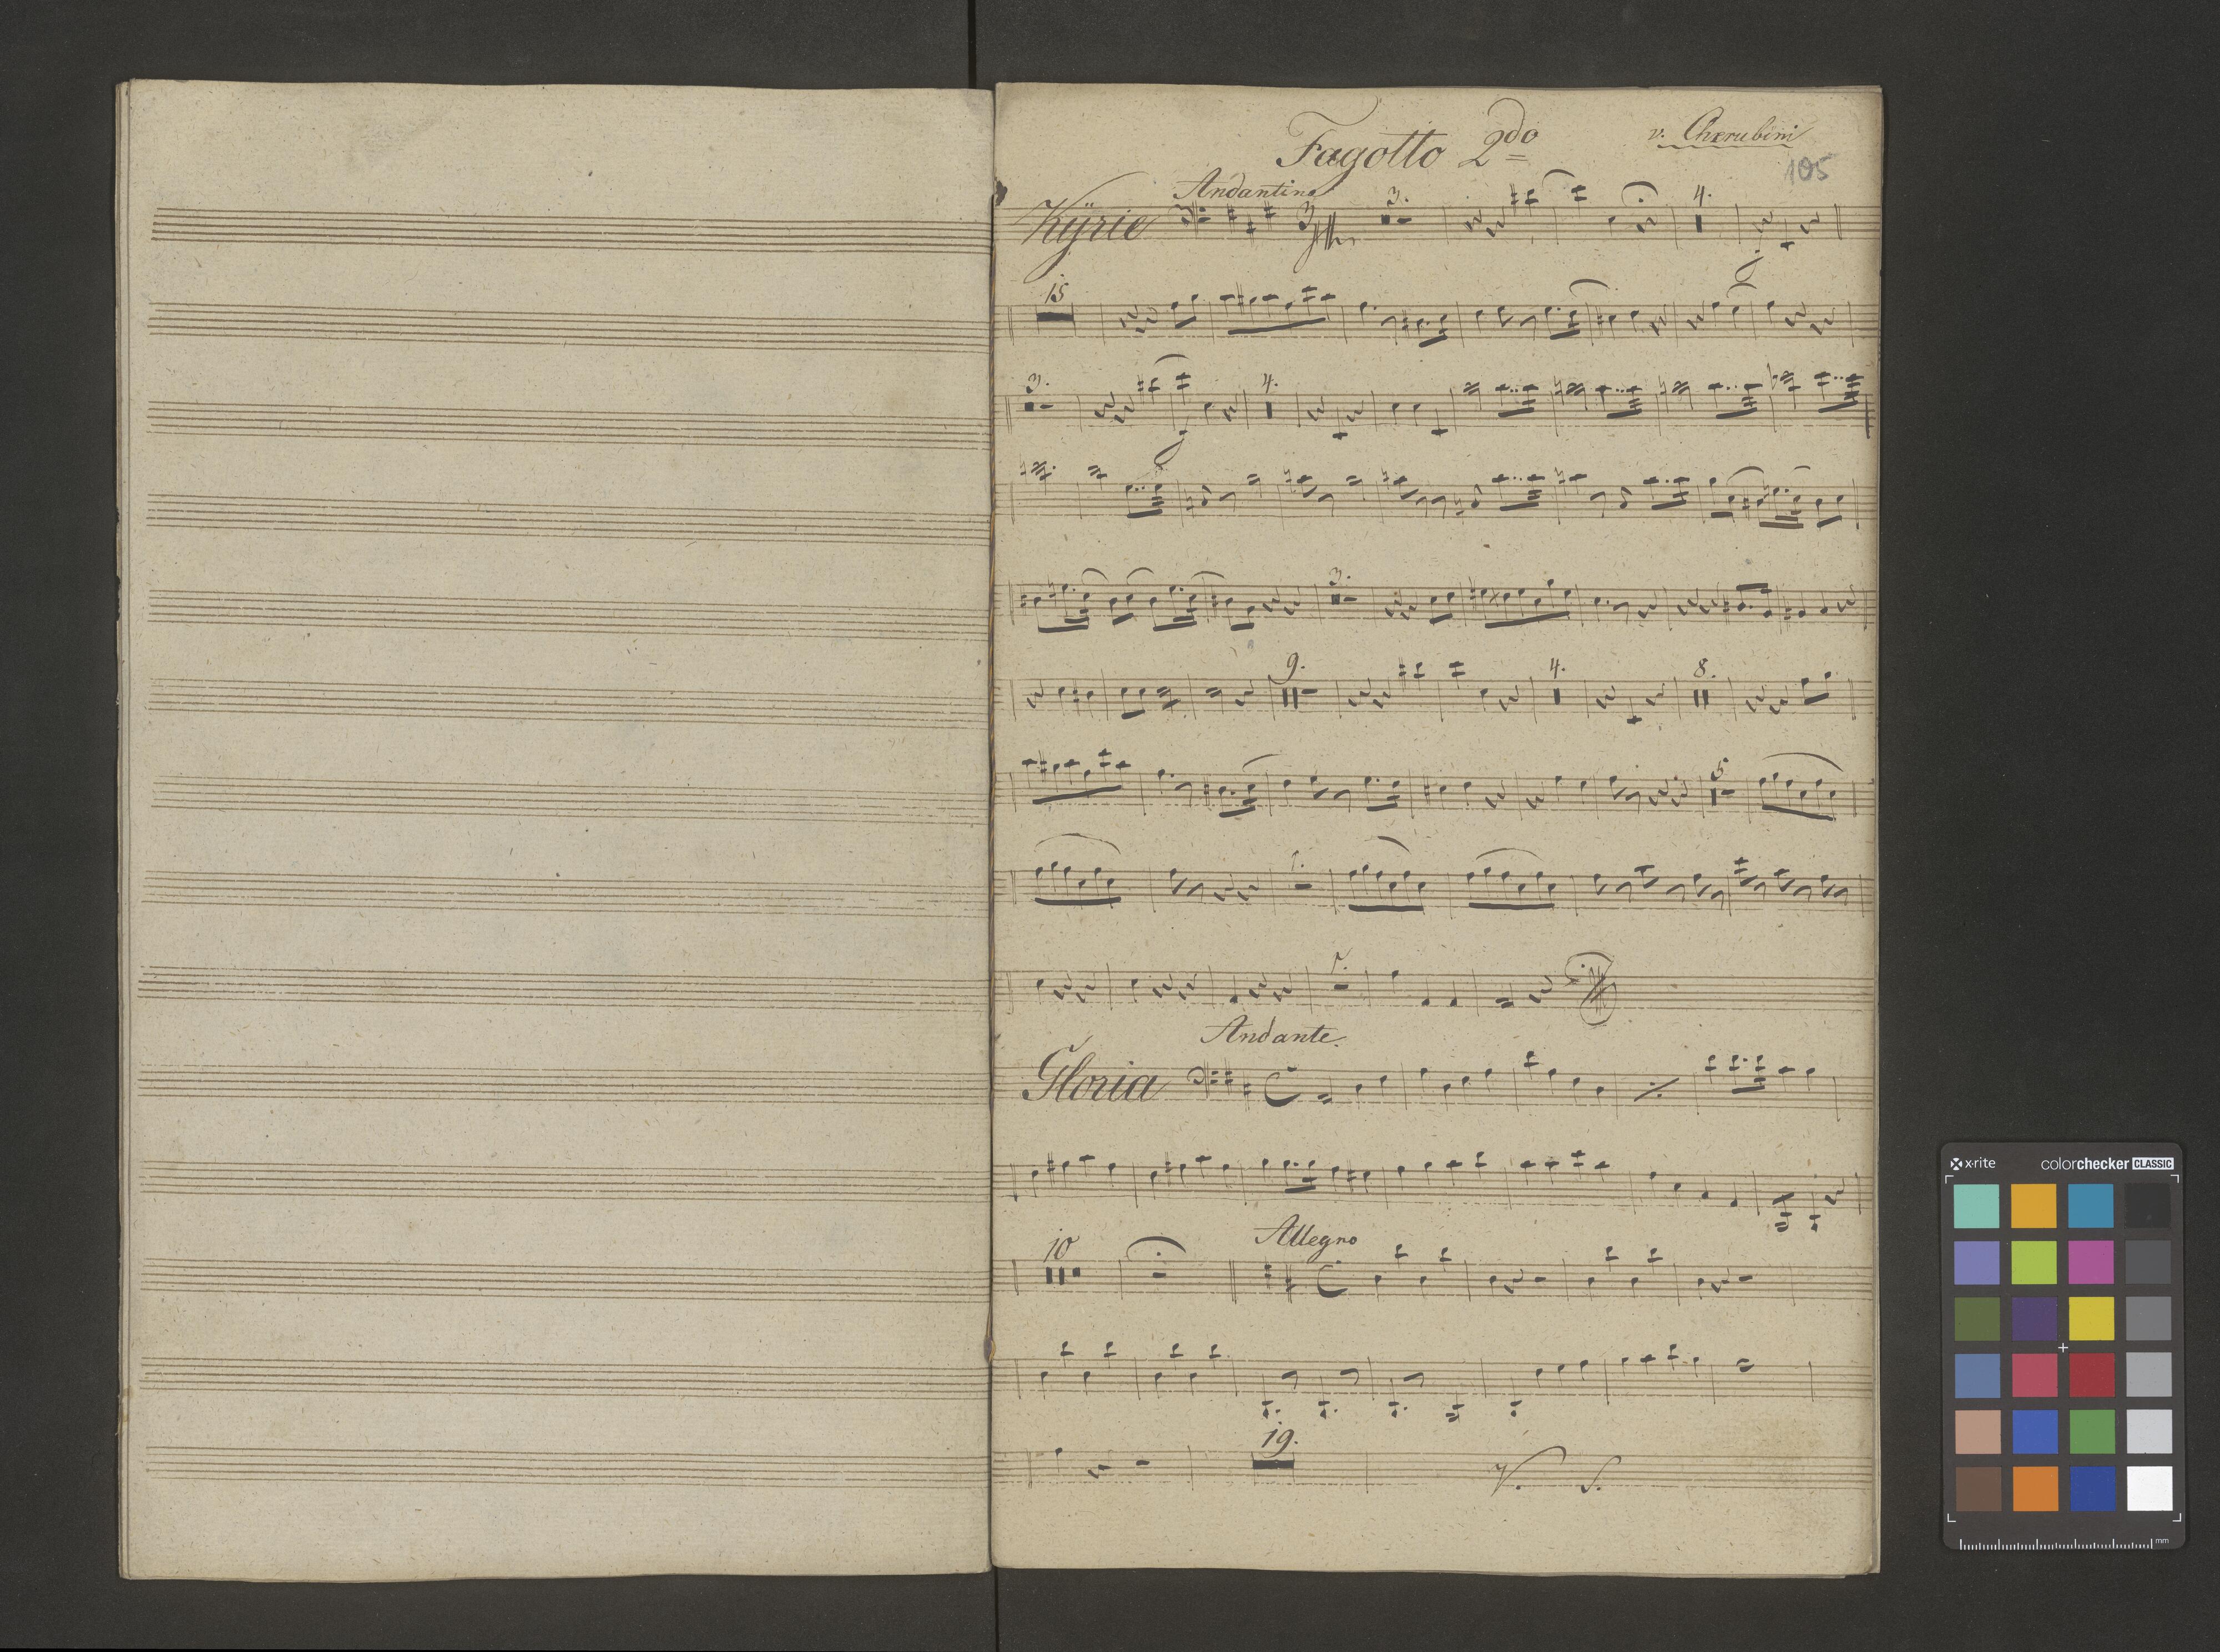 Fagotto 2do
v. Cherubini
105
Andantino
Kÿrie
3.
4.
15
3.
4.
3.
9.
4.
8.
5
1.
1.
Andante.
Gloria
10
Allegro
19.
V. S.
x-rite
colorchecker CLASSIC
mm